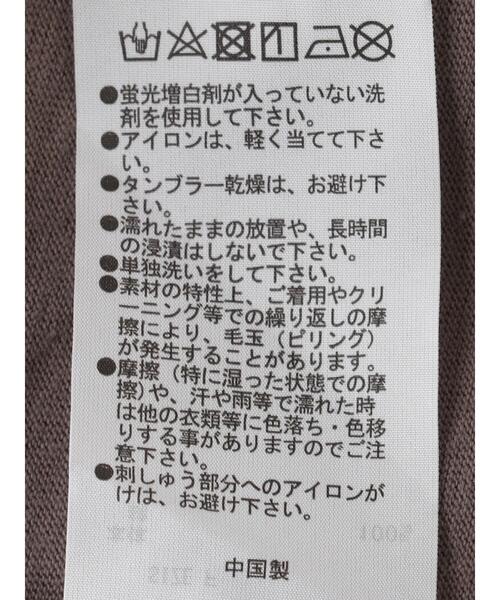 ●蛍光増白剤が入っていない洗
剤を使用して下さい。
●アイロンは、軽く当てて下さ
い。
●タンブラー乾燥は、お避け下
さい。
●濡れたままの放置や、長時間
の浸漬はしないで下さい。
●単独洗いをして下さい。
●素材の特性上、ご着用やクリ
ーニング等での繰り返しの摩
擦により、毛玉（ピリング）
が発生することがあります。
●摩擦（特に湿った状態での摩
擦）や、汗や雨等で濡れた時
は他の衣類等に色落ち・色移
りする事がありますのでご注
意下さい。
●刺しゅう部分へのアイロンが
けは、お避け下さい。
中国製